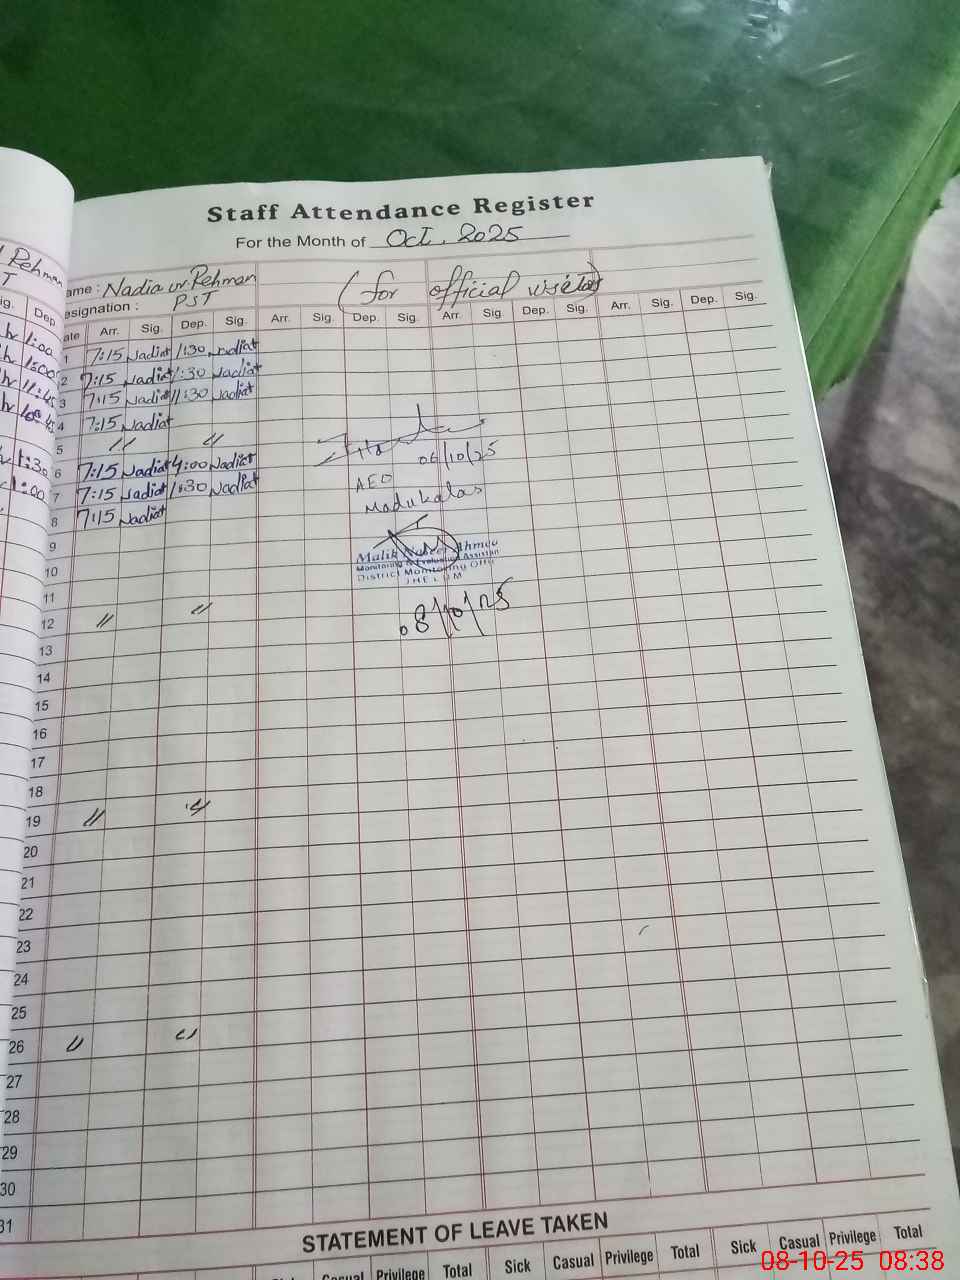 Staff Attendance Register
For the Month of Oct, 2025
Rehman
ame : Nadia ur Rehman
(for official visitors)
esignation : PST
ig. Dep
ate Arr. Sig. Dep. Sig. Arr. Sig. Dep. Sig. Arr. Sig. Dep. Sig. Arr. Sig. Dep. Sig.
1:00
1 7:15 Nadia 1:30 Nadia
1:00
2 7:15 Nadia 1:30 Nadia
11:45
3 7:15 Nadia 11:30 Nadia
4 7:15 Nadia
5 " "
1:30
6 7:15 Nadia 4:00 Nadia
06/10/25
1:00
7 7:15 Nadia 1:30 Nadia
AEO
Madukalas
8 7:15 Nadia
9
Malik Naseer Ahmed
Monitoring & Evaluation Assistan
10
District Monitoring Offi
JHELUM
11
08/10/25
12 " "
13
14
15
16
17
18
19 " "
20
21
22
23
24
25
26 " "
27
28
29
30
31
STATEMENT OF LEAVE TAKEN
Casual Privilege Total Sick Casual Privilege Total Sick Casual Privilege Total
08-10-25 08:38